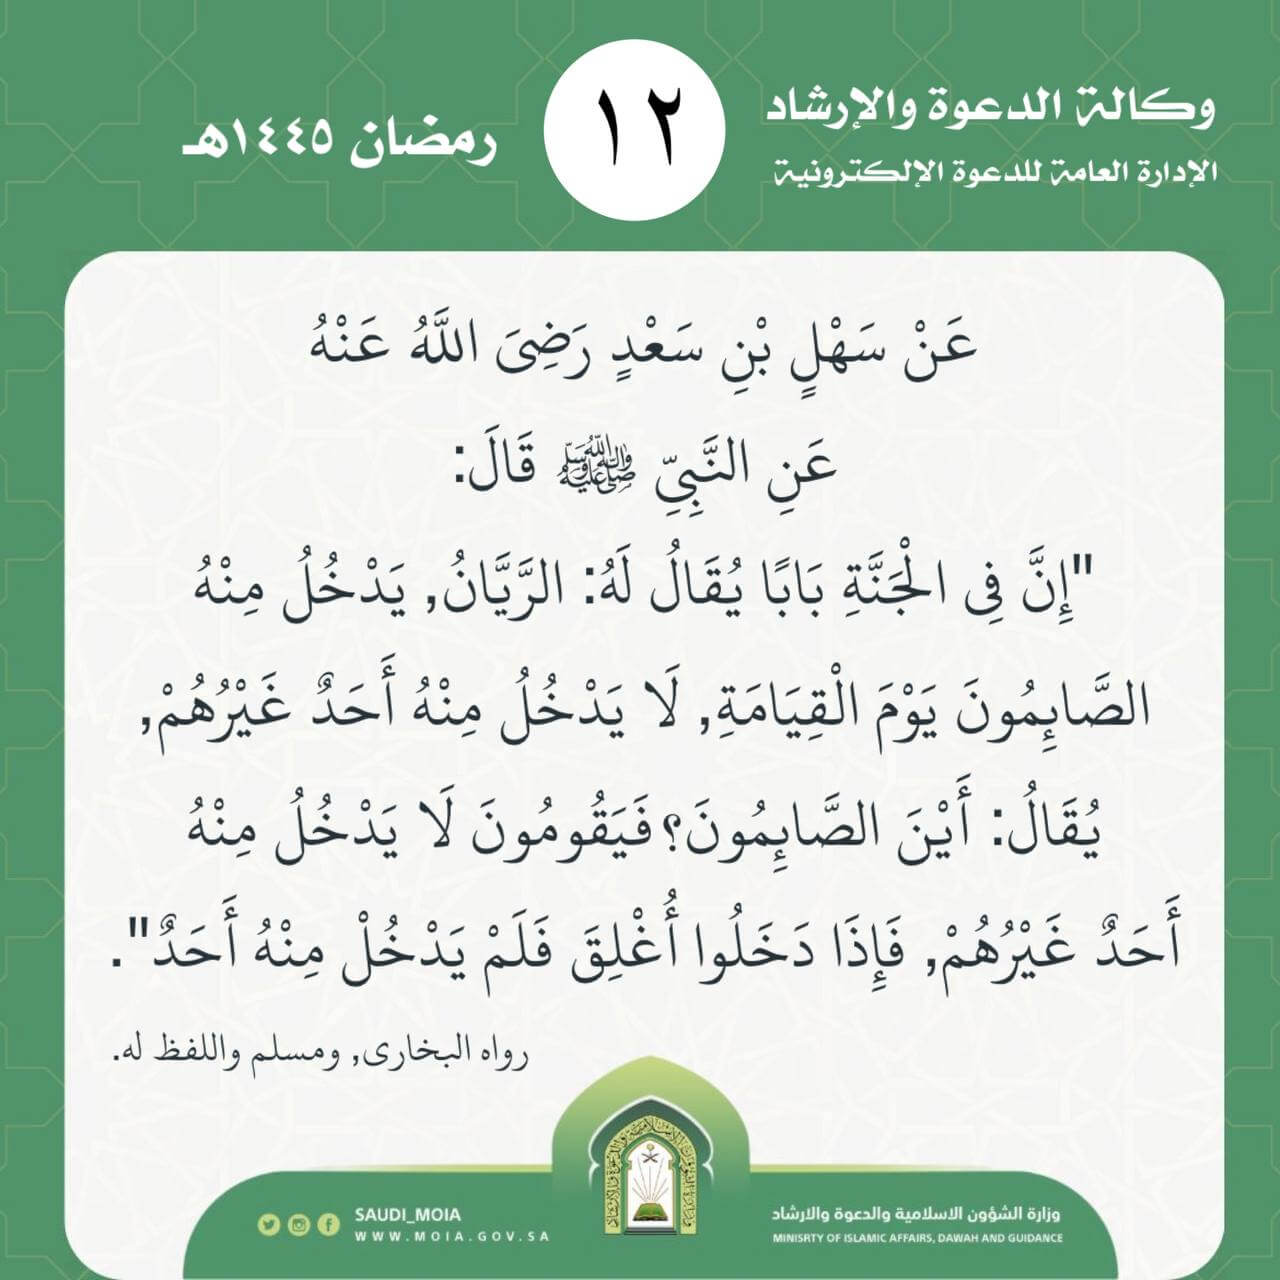 وكالة الدعوة والإرشاد
الإدارة العامة للدعوة الإلكترونية
١٢
رمضان ١٤٤٥هـ
عَنْ سَهْلِ بْنِ سَعْدٍ رَضِىَ اللَّهُ عَنْهُ
عَنِ النَّبِىِّ ﷺ قَالَ:
"إِنَّ فِى الْجَنَّةِ بَابًا يُقَالُ لَهُ: الرَّيَّانُ, يَدْخُلُ مِنْهُ
الصَّائِمُونَ يَوْمَ الْقِيَامَةِ, لَا يَدْخُلُ مِنْهُ أَحَدٌ غَيْرُهُمْ,
يُقَالُ: أَيْنَ الصَّائِمُونَ؟ فَيَقُومُونَ لَا يَدْخُلُ مِنْهُ
أَحَدٌ غَيْرُهُمْ, فَإِذَا دَخَلُوا أُغْلِقَ فَلَمْ يَدْخُلْ مِنْهُ أَحَدٌ".
رواه البخارى, ومسلم واللفظ له.
وزارة الشؤون الاسلامية والدعوة والارشاد
MINISRTY OF ISLAMIC AFFAIRS, DAWAH AND GUIDANCE
SAUDI_MOIA
WWW.MOIA.GOV.SA